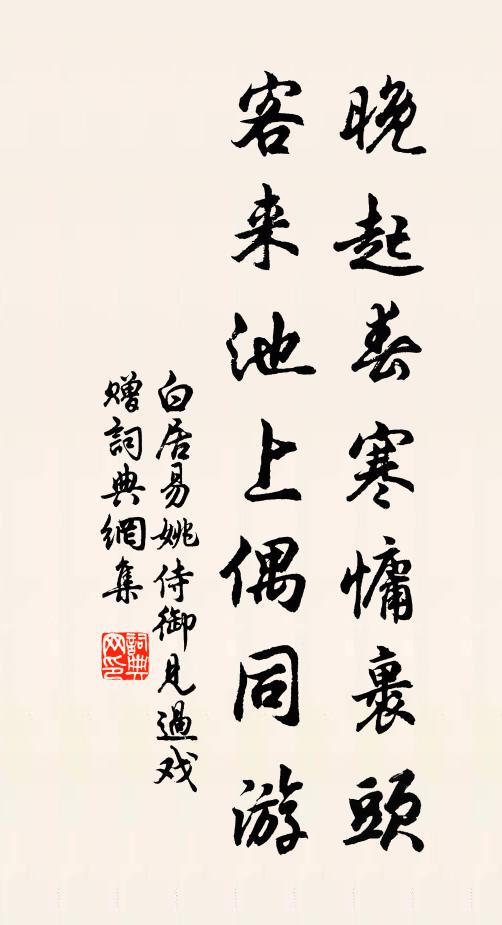 晚起春寒慵裹頭
客来池上偶同游
白居易姚侍御見過戏
贈詞典網集
詞典网印